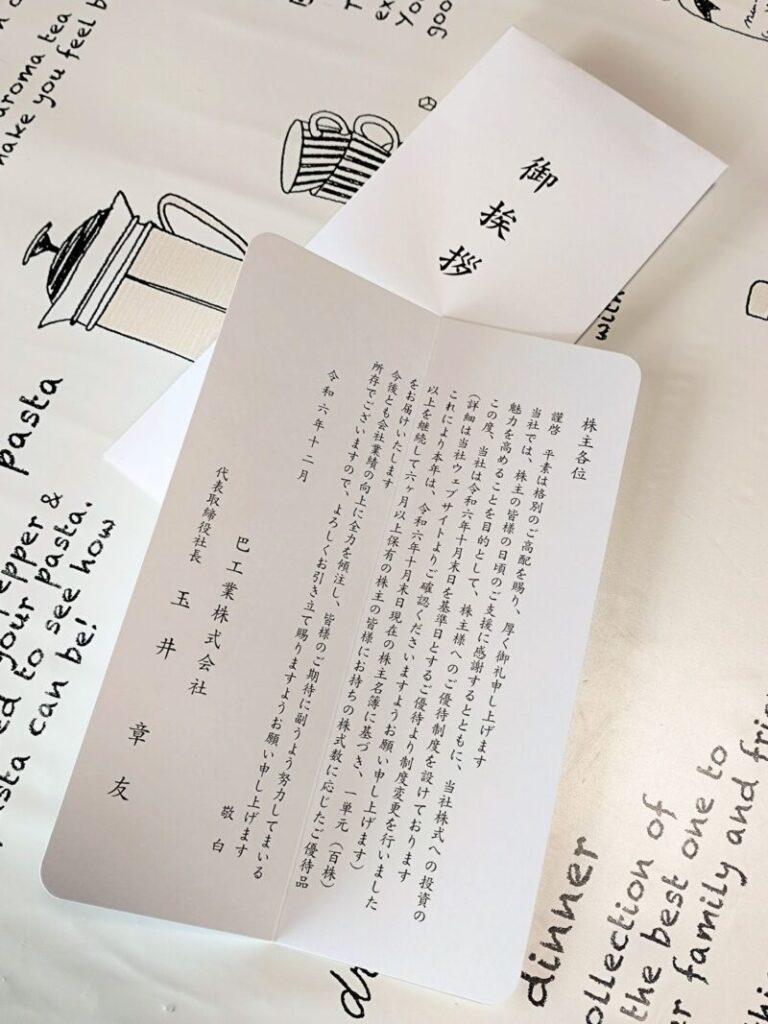 御挨拶
株主各位
謹啓　平素は格別のご高配を賜り、厚く御礼申し上げます
当社では、株主の皆様の日頃のご支援に感謝するとともに、当社株式への投資の
魅力を高めることを目的として、株主様へのご優待制度を設けております
この度、当社は令和六年十月末日を基準日とするご優待より制度変更を行いました
（詳細は当社ウェブサイトよりご確認くださいますようお願い申し上げます）
これにより本年は、令和六年十月末日現在の株主名簿に基づき、一単元（百株）
以上を継続して六ヶ月以上保有の株主の皆様にお持ちの株式数に応じたご優待品
をお届けいたします
今後とも会社業績の向上に全力を傾注し、皆様のご期待に副うよう努力してまいる
所存でございますので、よろしくお引き立て賜りますようお願い申し上げます
敬白
令和六年十二月
巴工業株式会社
代表取締役社長　玉井　章友
aroma tea
make you feel b
goo
pasta
epper &
your pasta.
ed to see how
asta can be!
dinner
ollection of
the best one to
r family and frie